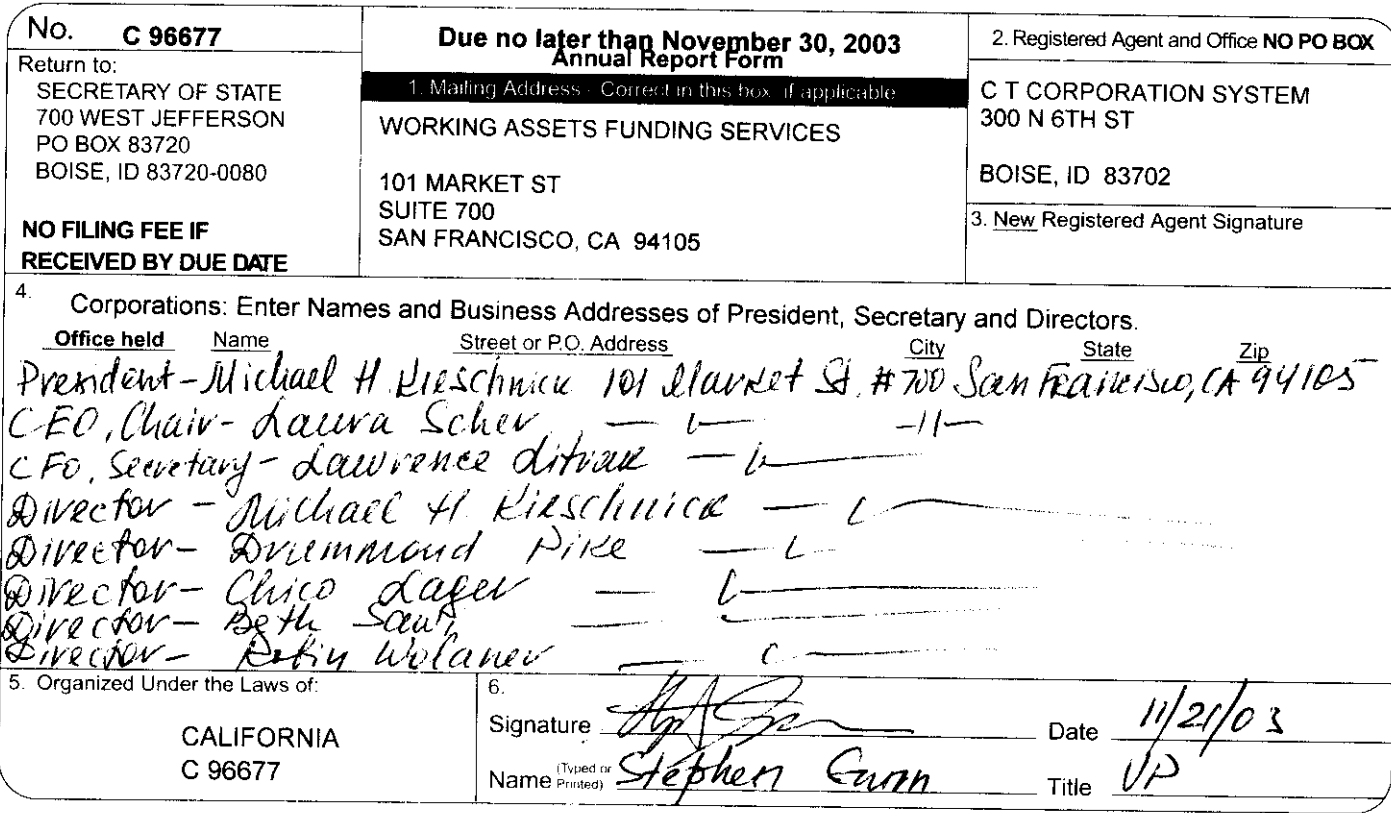 No. C 96677
Return to:
SECRETARY OF STATE
700 WEST JEFFERSON
PO BOX 83720
BOISE, ID 83720-0080
NO FILING FEE IF
RECEIVED BY DUE DATE
Due no later than November 30, 2003
Annual Report Form
1. Mailing Address - Correct in this box, if applicable
WORKING ASSETS FUNDING SERVICES
101 MARKET ST
SUITE 700
SAN FRANCISCO, CA 94105
2. Registered Agent and Office NO PO BOX
C T CORPORATION SYSTEM
300 N 6TH ST
BOISE, ID 83702
3. New Registered Agent Signature
4. Corporations: Enter Names and Business Addresses of President, Secretary and Directors.
Office held Name Street or P.O. Address City State Zip
President - Michael H Kieschnick 101 Market St. #700 San Francisco, CA 94105
CEO, Chair - Laura Scher — " — - 11 -
CFO, Secretary - Lawrence Litvak — " —
Director - Michael H Kieschnick — " —
Director - Drummond Pike — " —
Director - Chico Lager — " —
Director - Beth — " —
Director - Robin Wolaner — " —
5. Organized Under the Laws of:
CALIFORNIA
C 96677
6.
Signature Date 11/21/03
Name (Typed or Printed) Stephen Gunn Title VP